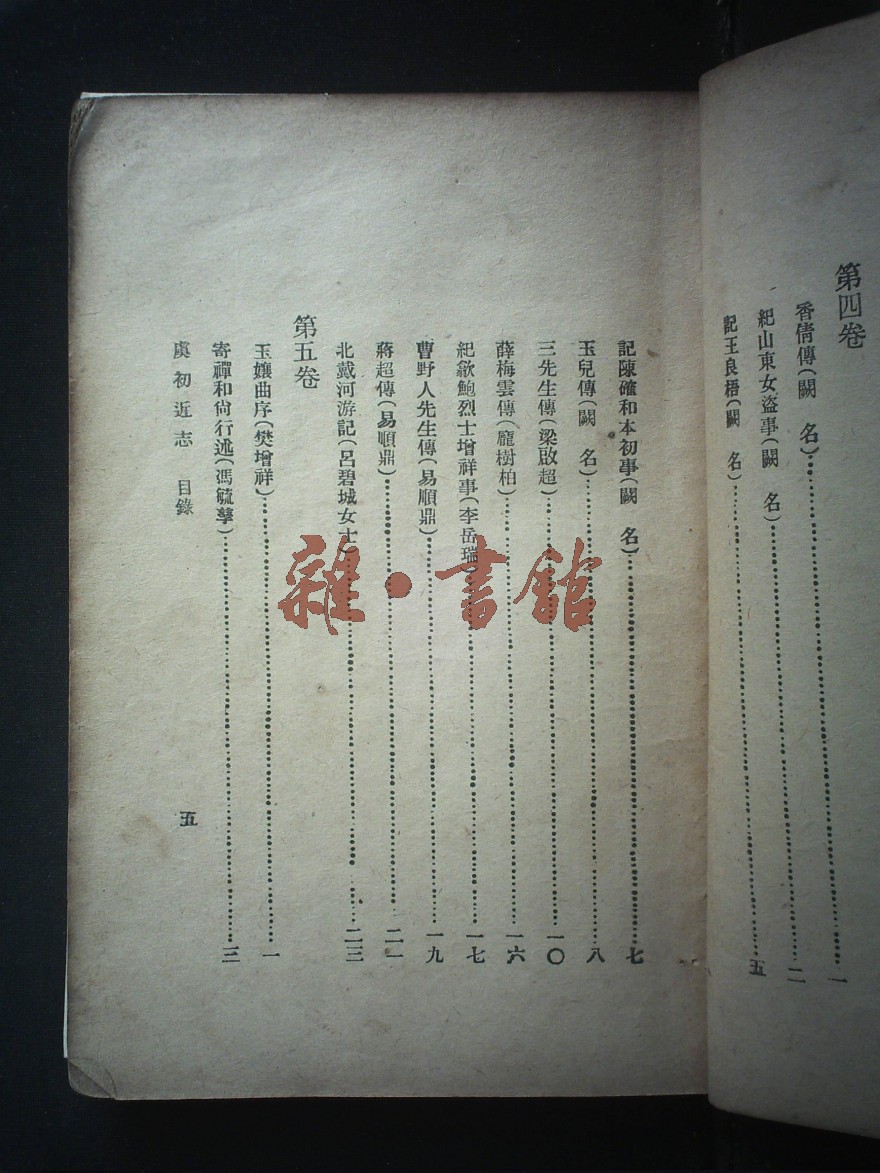 第四卷
香倩傳(闕 名)一
紀山東女盜事(闕 名)二
記王良梧(闕 名)五
記陳確和本初事(闕 名)七
玉兒傳(闕 名)八
三先生傳(梁啟超)一〇
薛梅雲傳(龐樹柏)一六
紀歙鮑烈士增祥事(李岳瑞)一七
曹野人先生傳(易順鼎)一九
蔣超傳(易順鼎)二一
北戴河游記(呂碧城女士)二三
第五卷
玉孃曲序(樊增祥)一
寄禪和尙行述(馮毓孳)三
虞初近志 目錄 五
雜·書館